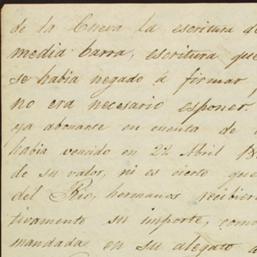 de la Cueva la escritura de
media barra, escritura que
se habia negado á firmar
no era necesario esponer
ya abonarse en cuenta de
habia vencido en 22 Abril 18
de su valor, ni es cierto que
del Rio, hermanos recibier
tivamente su importe, como
mandada en su alegato